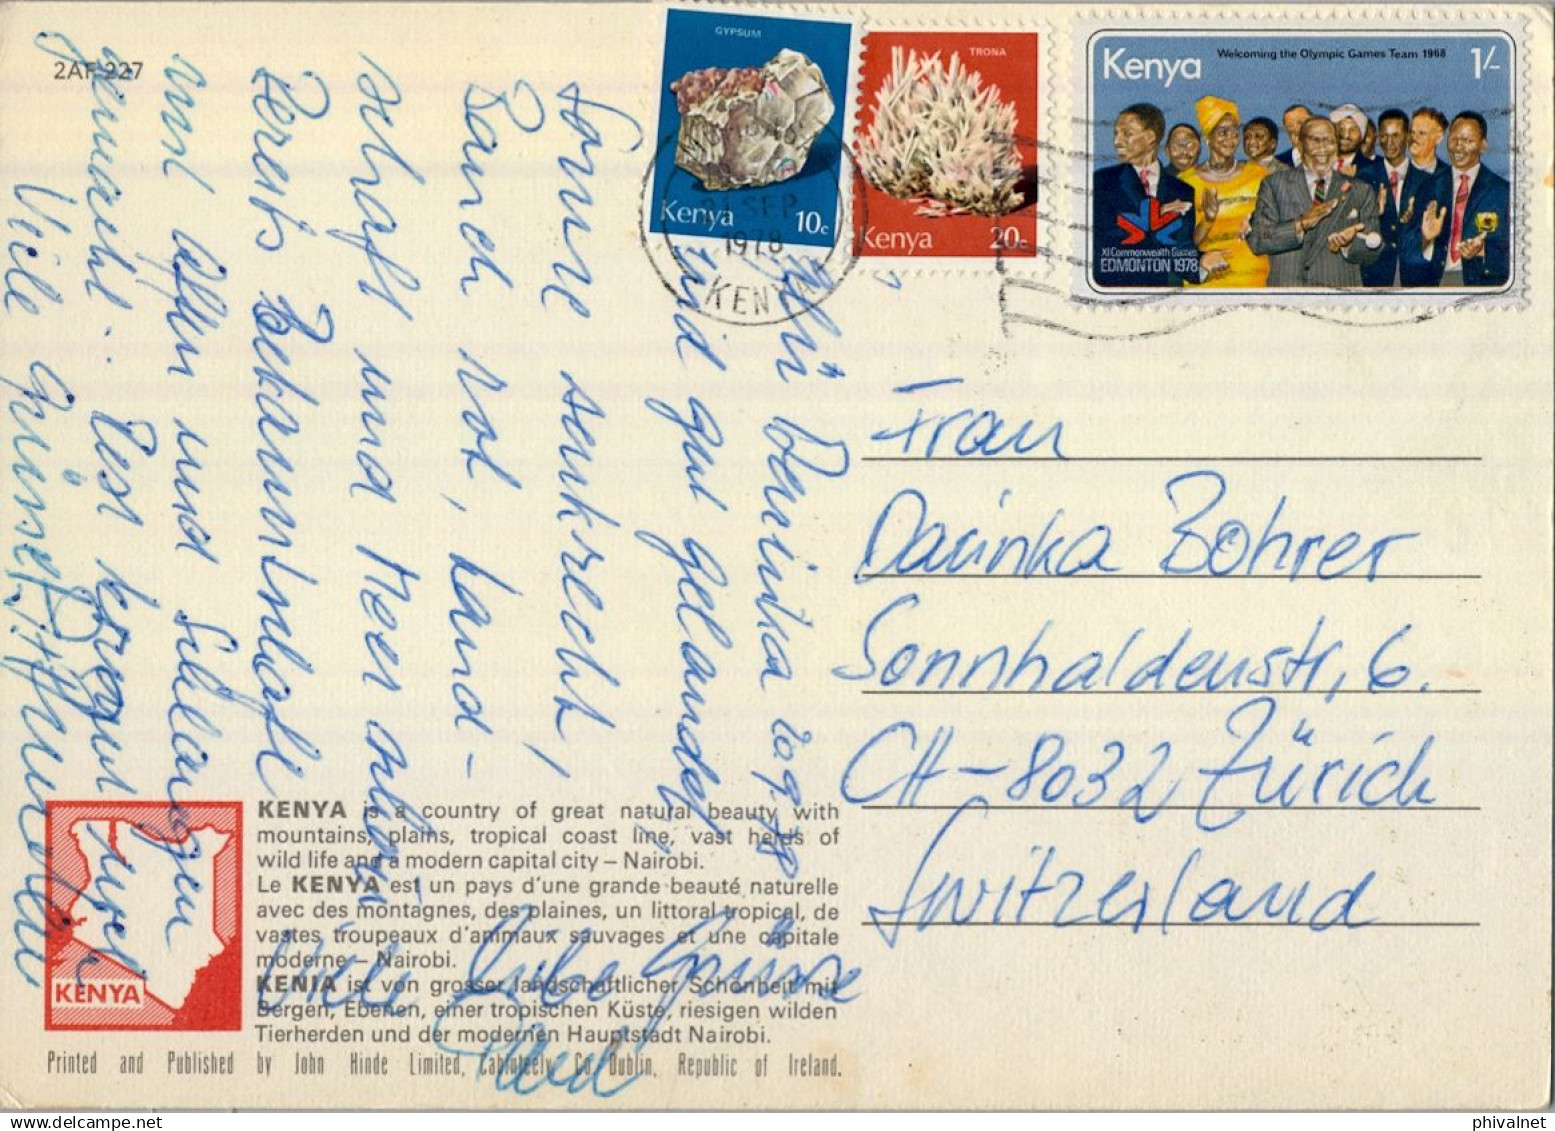 2AF 227
GYPSUM
Kenya 10c
TRONA
Kenya 20c
Kenya
Welcoming the Olympic Games Team 1968
1/-
XI Commonwealth Games
EDMONTON 1978
21 SEP
1978
KENYA
Frau
Darinka Bohrer
Sonnhaldenstr. 6.
CH-8032 Zürich
Switzerland
20.9.78
sind gut gelandet,
Sonne senkrecht,
Land-
schaft und Meer
und Affen und
Viele
Viele liebe Grüsse
Paul
KENYA is a country of great natural beauty with
mountains, plains, tropical coast line, vast herds of
wild life and a modern capital city – Nairobi.
Le KENYA est un pays d'une grande beauté naturelle
avec des montagnes, des plaines, un littoral tropical, de
vastes troupeaux d'animaux sauvages et une capitale
moderne – Nairobi.
KENIA ist von grosser landschaftlicher Schönheit mit
Bergen, Ebenen, einer tropischen Küste, riesigen wilden
Tierherden und der modernen Hauptstadt Nairobi.
KENYA
Printed and Published by John Hinde Limited, Cabinteely, Co. Dublin, Republic of Ireland.
phivalnet